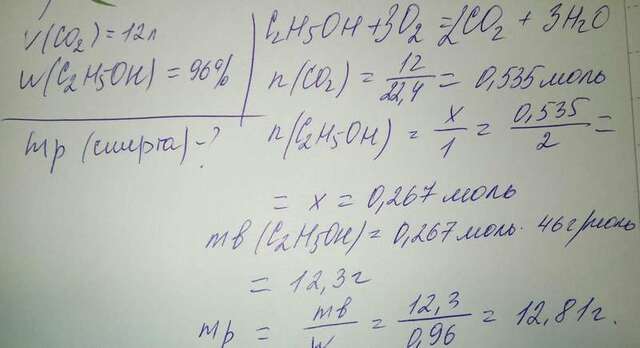 V(CO₂) = 12л
W(C₂H₅OH) = 96%
mp (спирта) - ?
C₂H₅OH + 3O₂ = 2CO₂ + 3H₂O
n(CO₂) = 12/22,4 = 0,535 моль
n(C₂H₅OH) = x/1 = 0,535/2 =
= x = 0,267 моль
mв (C₂H₅OH) = 0,267 моль · 46 г/моль
= 12,3 г
mp = mв/W = 12,3/0,96 = 12,81 г.